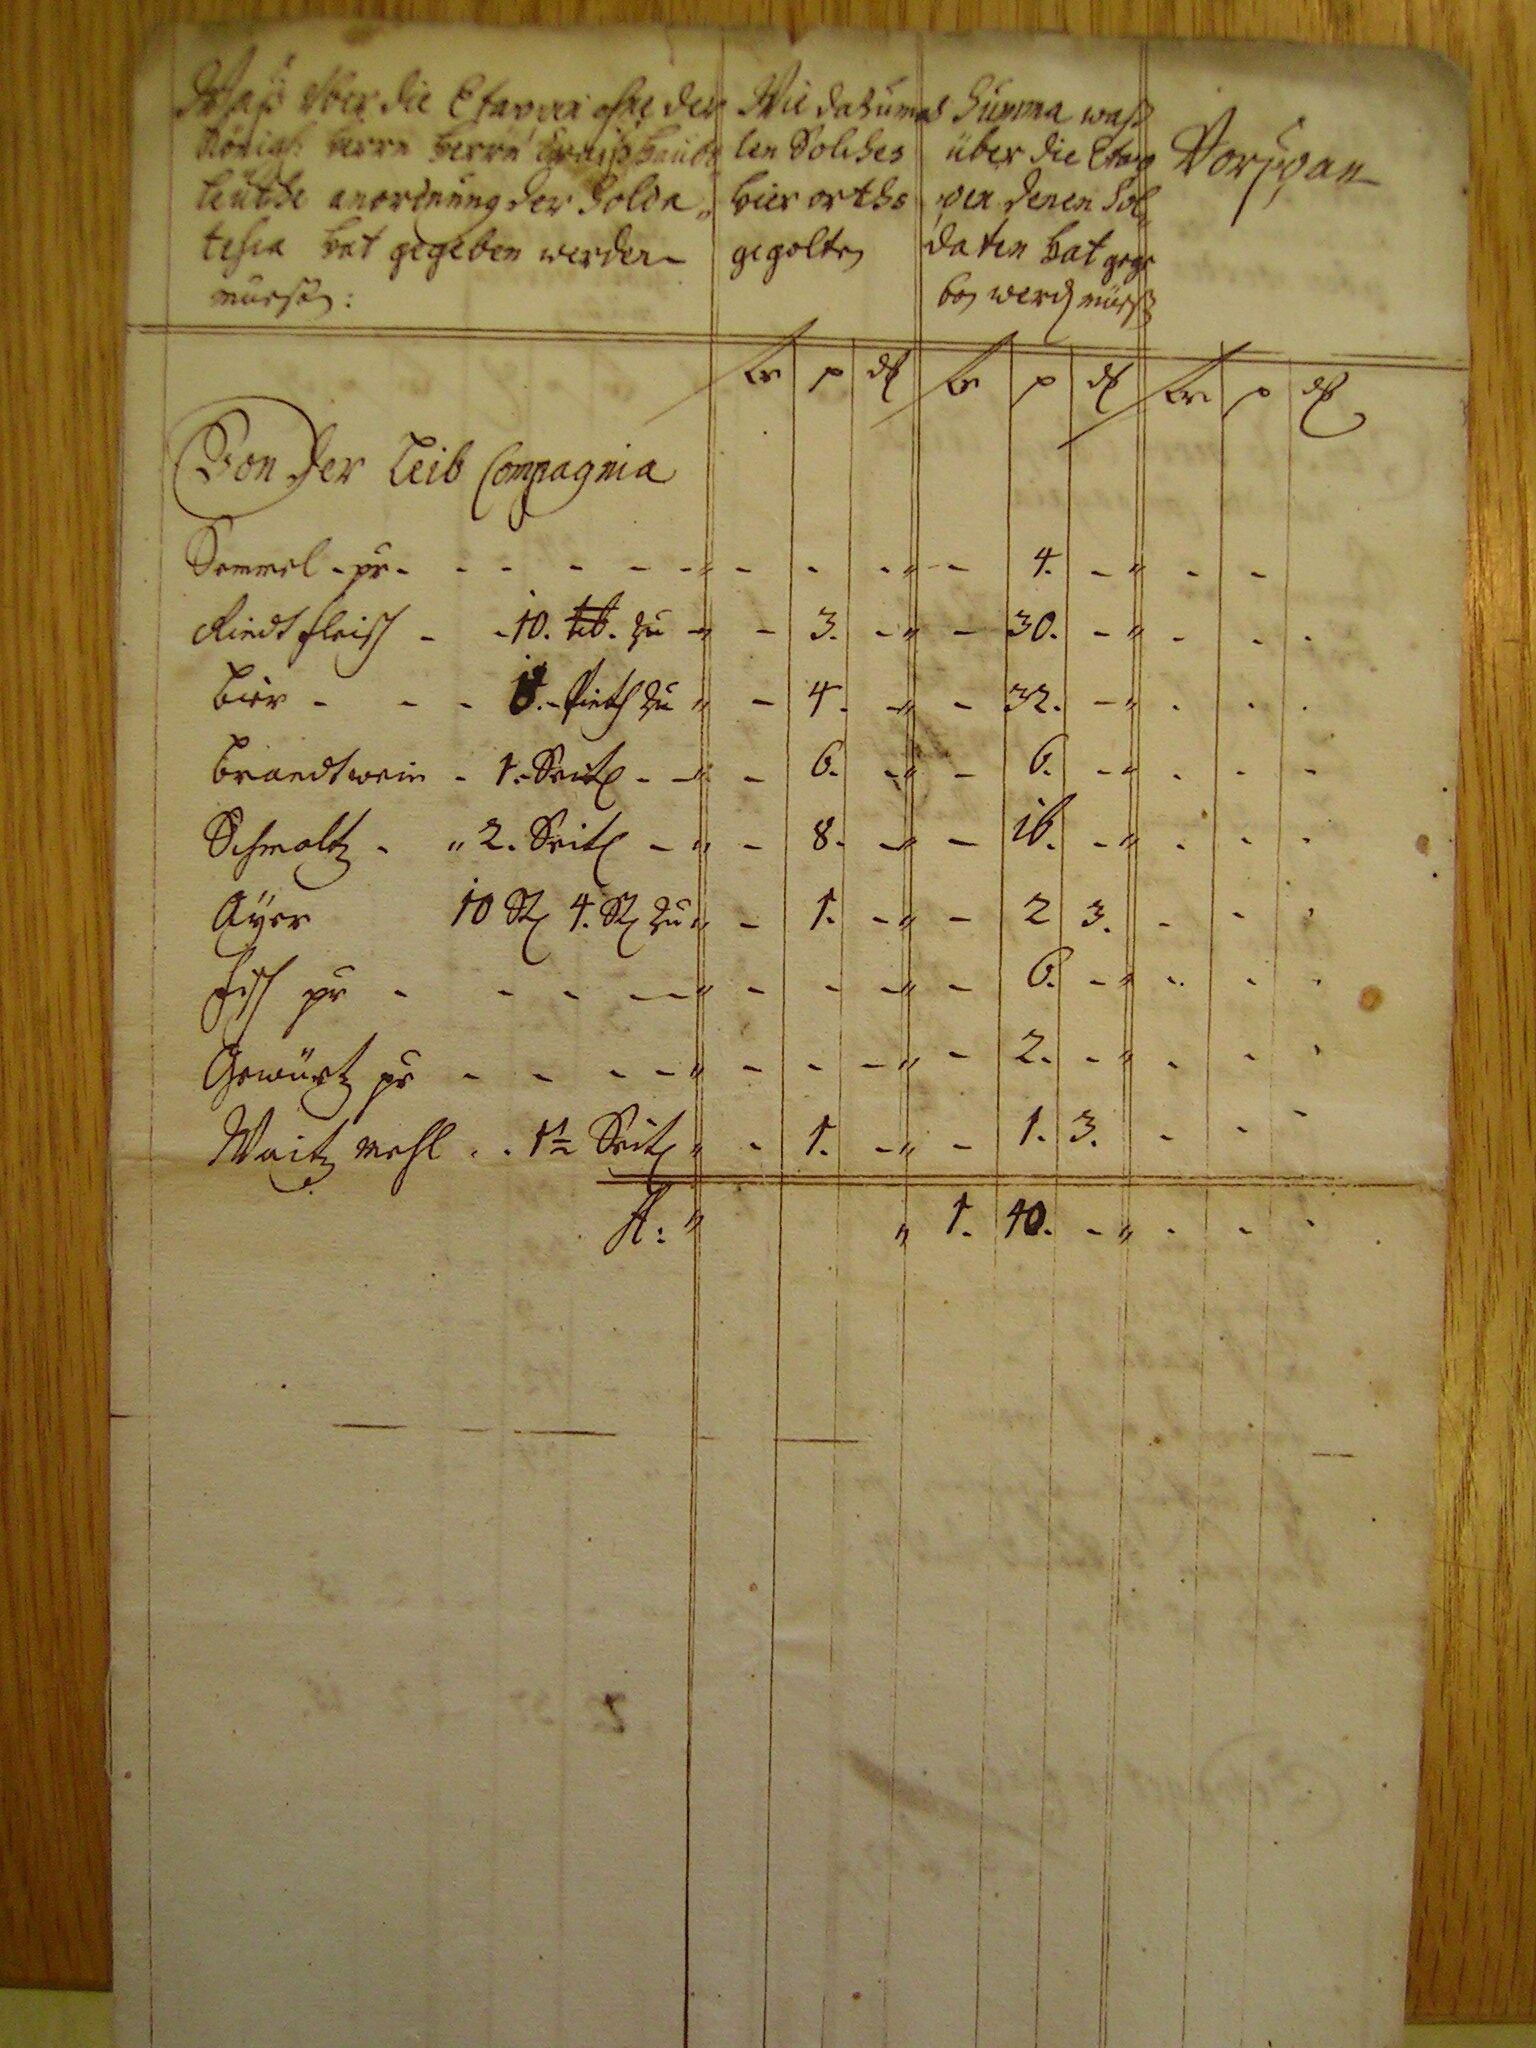 Waß über die Etappen ohne der
Königl. Herrn Herrn Creißhaubt
leüthe anordnung der Solda„
tesca hat gegeben werden
mües&shy;sen:
Wie dazumal
len Solches
hier orths
gegolten
Summa waß
über die Etap
pen denen Sol„
daten hat gege
ben werden müess
Vorspan
p p p
Von der Leib Compagnia
Semmel - pr - - - - - - „ - - - „ - 4. - „ - -
Riedtfleisch - - 10. lb. zu „ - 3. - „ - 30. - „ - - -
Bier - - - 8. Pinth zu „ - 4. - „ - 32. - „ - - -
Brandtwein - 1. Seitl - - „ - 6. - „ - 6. - „ - - -
Schmaltz - „ 2. Seitl - „ - 8. - „ - 16. - „ - - -
Ayer 10 St 4. St zu „ - 1. - „ - 2 3. - - -
Fisch pr - - - - - „ - - - „ - 6. - „ - - -
Gewürtz pr - - - - „ - - - „ - 2. - „ - - -
Waitz mehl - - 1½ Seitl „ - 1. - „ - 1. 3. - - -
„ „ 1. 40. - „ - - -